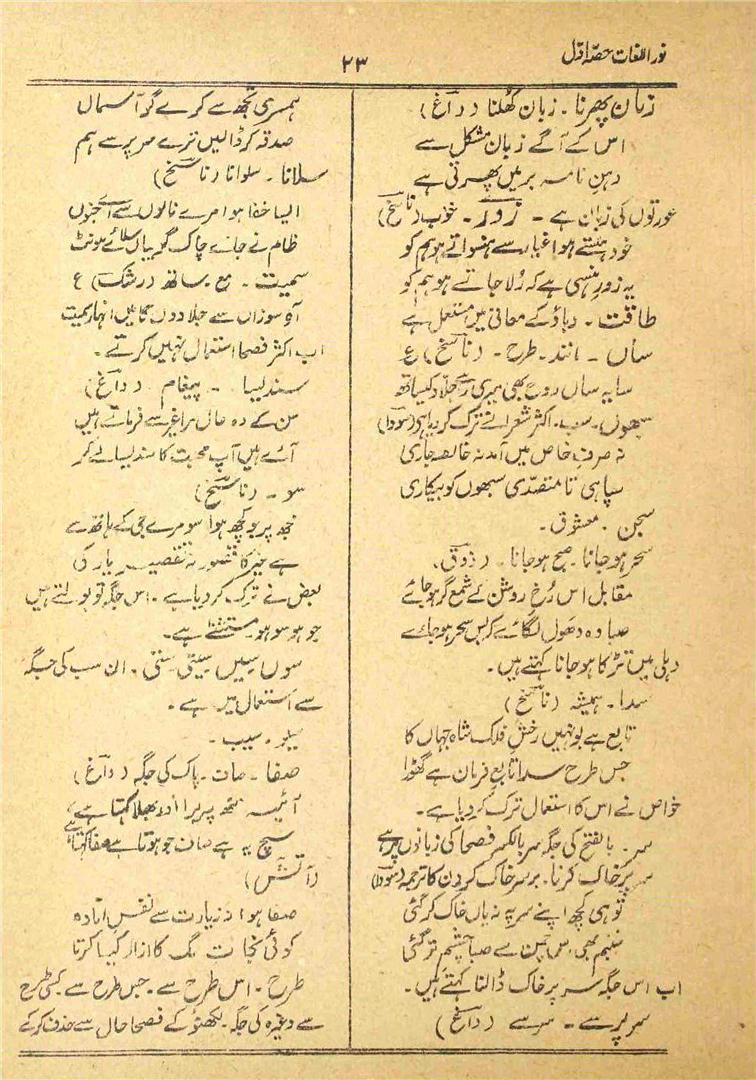 نور اللغات حصہ اوّل
۲۳
زبان پھرنا ۔ زبان کھلنا (داغ)
اس کے آگے زبان مشکل سے
دہن نامہ بر میں پھرتی ہے
عورتوں کی زبان ہے ۔ زور ۔ خوب (ناسخ)
خود ہنستے ہو اغیار سے ہنسواتے ہو ہم کو
یہ زور ہنسی ہے کہ رُلا جاتے ہو ہم کو
طاقت ۔ دباؤ کے معانی میں مستعمل ہے
ساں ۔ مانند ۔ طرح ۔ (ناسخ) ع
سایہ ساں روح بھی میری جلاد کیساتھ
سبھوں ۔ سب ۔ اکثر شعرا نے ترک کر دیا ہے (سودا)
نہ صرف خاص میں آمد نہ خالصہ جاری
سپاہی تا متصدّی سبھوں کو بیکاری
سجن ۔ معشوق ۔
سحر ہو جانا ۔ صبح ہو جانا ۔ (ذوق)
مقابل اس رُخ روشن کے شمع گر ہو جائے
صبا وہ دھول لگائے کہ بس سحر ہو جائے
دہلی میں تڑکا ہو جانا کہتے ہیں ۔
سدا ۔ ہمیشہ (ناسخ)
تابع ہے یونہیں رخش فلک شاہ جہاں کا
جس طرح سدا تابع فرمان ہے گھوڑا
خواص نے اس کا استعمال ترک کر دیا ہے ۔
سر ۔ بالفتح کی جگہ سر بالکسر فصحا کی زبانوں پر ہے
سر پر خاک کرنا ۔ برسر خاک کردن کا ترجمہ (سودا)
تو ہی کچھ اپنے سر پہ نہ یاں خاک کر گئی
شبنم بھی اس چمن سے صبا چشم تر گئی
اب اس جگہ سر پر خاک ڈالنا کہتے ہیں ۔
سر پر سے ۔ سر سے (داغ)
ہمسری تجھ سے کرے گر آسماں
صدقہ کر ڈالیں ترے سر پر سے ہم
سلانا ۔ سلوانا (ناسخ)
ایسا خفا ہوا مرے نالوں سے
ظالم نے جائے چاک گریباں سلائے ہونٹ
سمیت ۔ مع ۔ ساتھ (رشک) ع
آہ سوزاں سے جلا دوں گا میں انہار سمیت
اب اکثر فصحا استعمال نہیں کرتے ۔
سندیسا ۔ پیغام (داغ)
سن کے وہ حال مرا غیر سے فرماتے ہیں
آئے ہیں آپ محبت کا سندیسا لے کر
سو ۔ (ناسخ)
مجھ پر جو کچھ ہوا سو مرے جی کے ہاتھ سے
ہے غیر کا قصور نہ تقصیر یار کی
بعض نے ترک کر دیا ہے ۔ اس جگہ تو بولتے ہیں
جو ہو سو ہو مستثنےٰ ہے ۔
سوں سیں سیتی ستی ۔ ان سب کی جگہ
سے استعمال میں ہے ۔
سیو ۔ سیب ۔
صفا ۔ صاف ۔ پاک کی جگہ (داغ)
آئینہ منھ پر برا اور بھلا کہتا ہے
سچ یہ ہے صاف جو ہوتا ہے صفا کہتا ہے
(آتش)
صفا ہوا نہ زیارت سے نفس امّادہ
کوئی نجاست سگ کا ازار کیا کرتا
طرح ۔ اس طرح سے ۔ جس طرح سے کسی طرح
سے وغیرہ کی جگہ ۔ لکھنؤ کے فصحا حال سے حذف کر کے